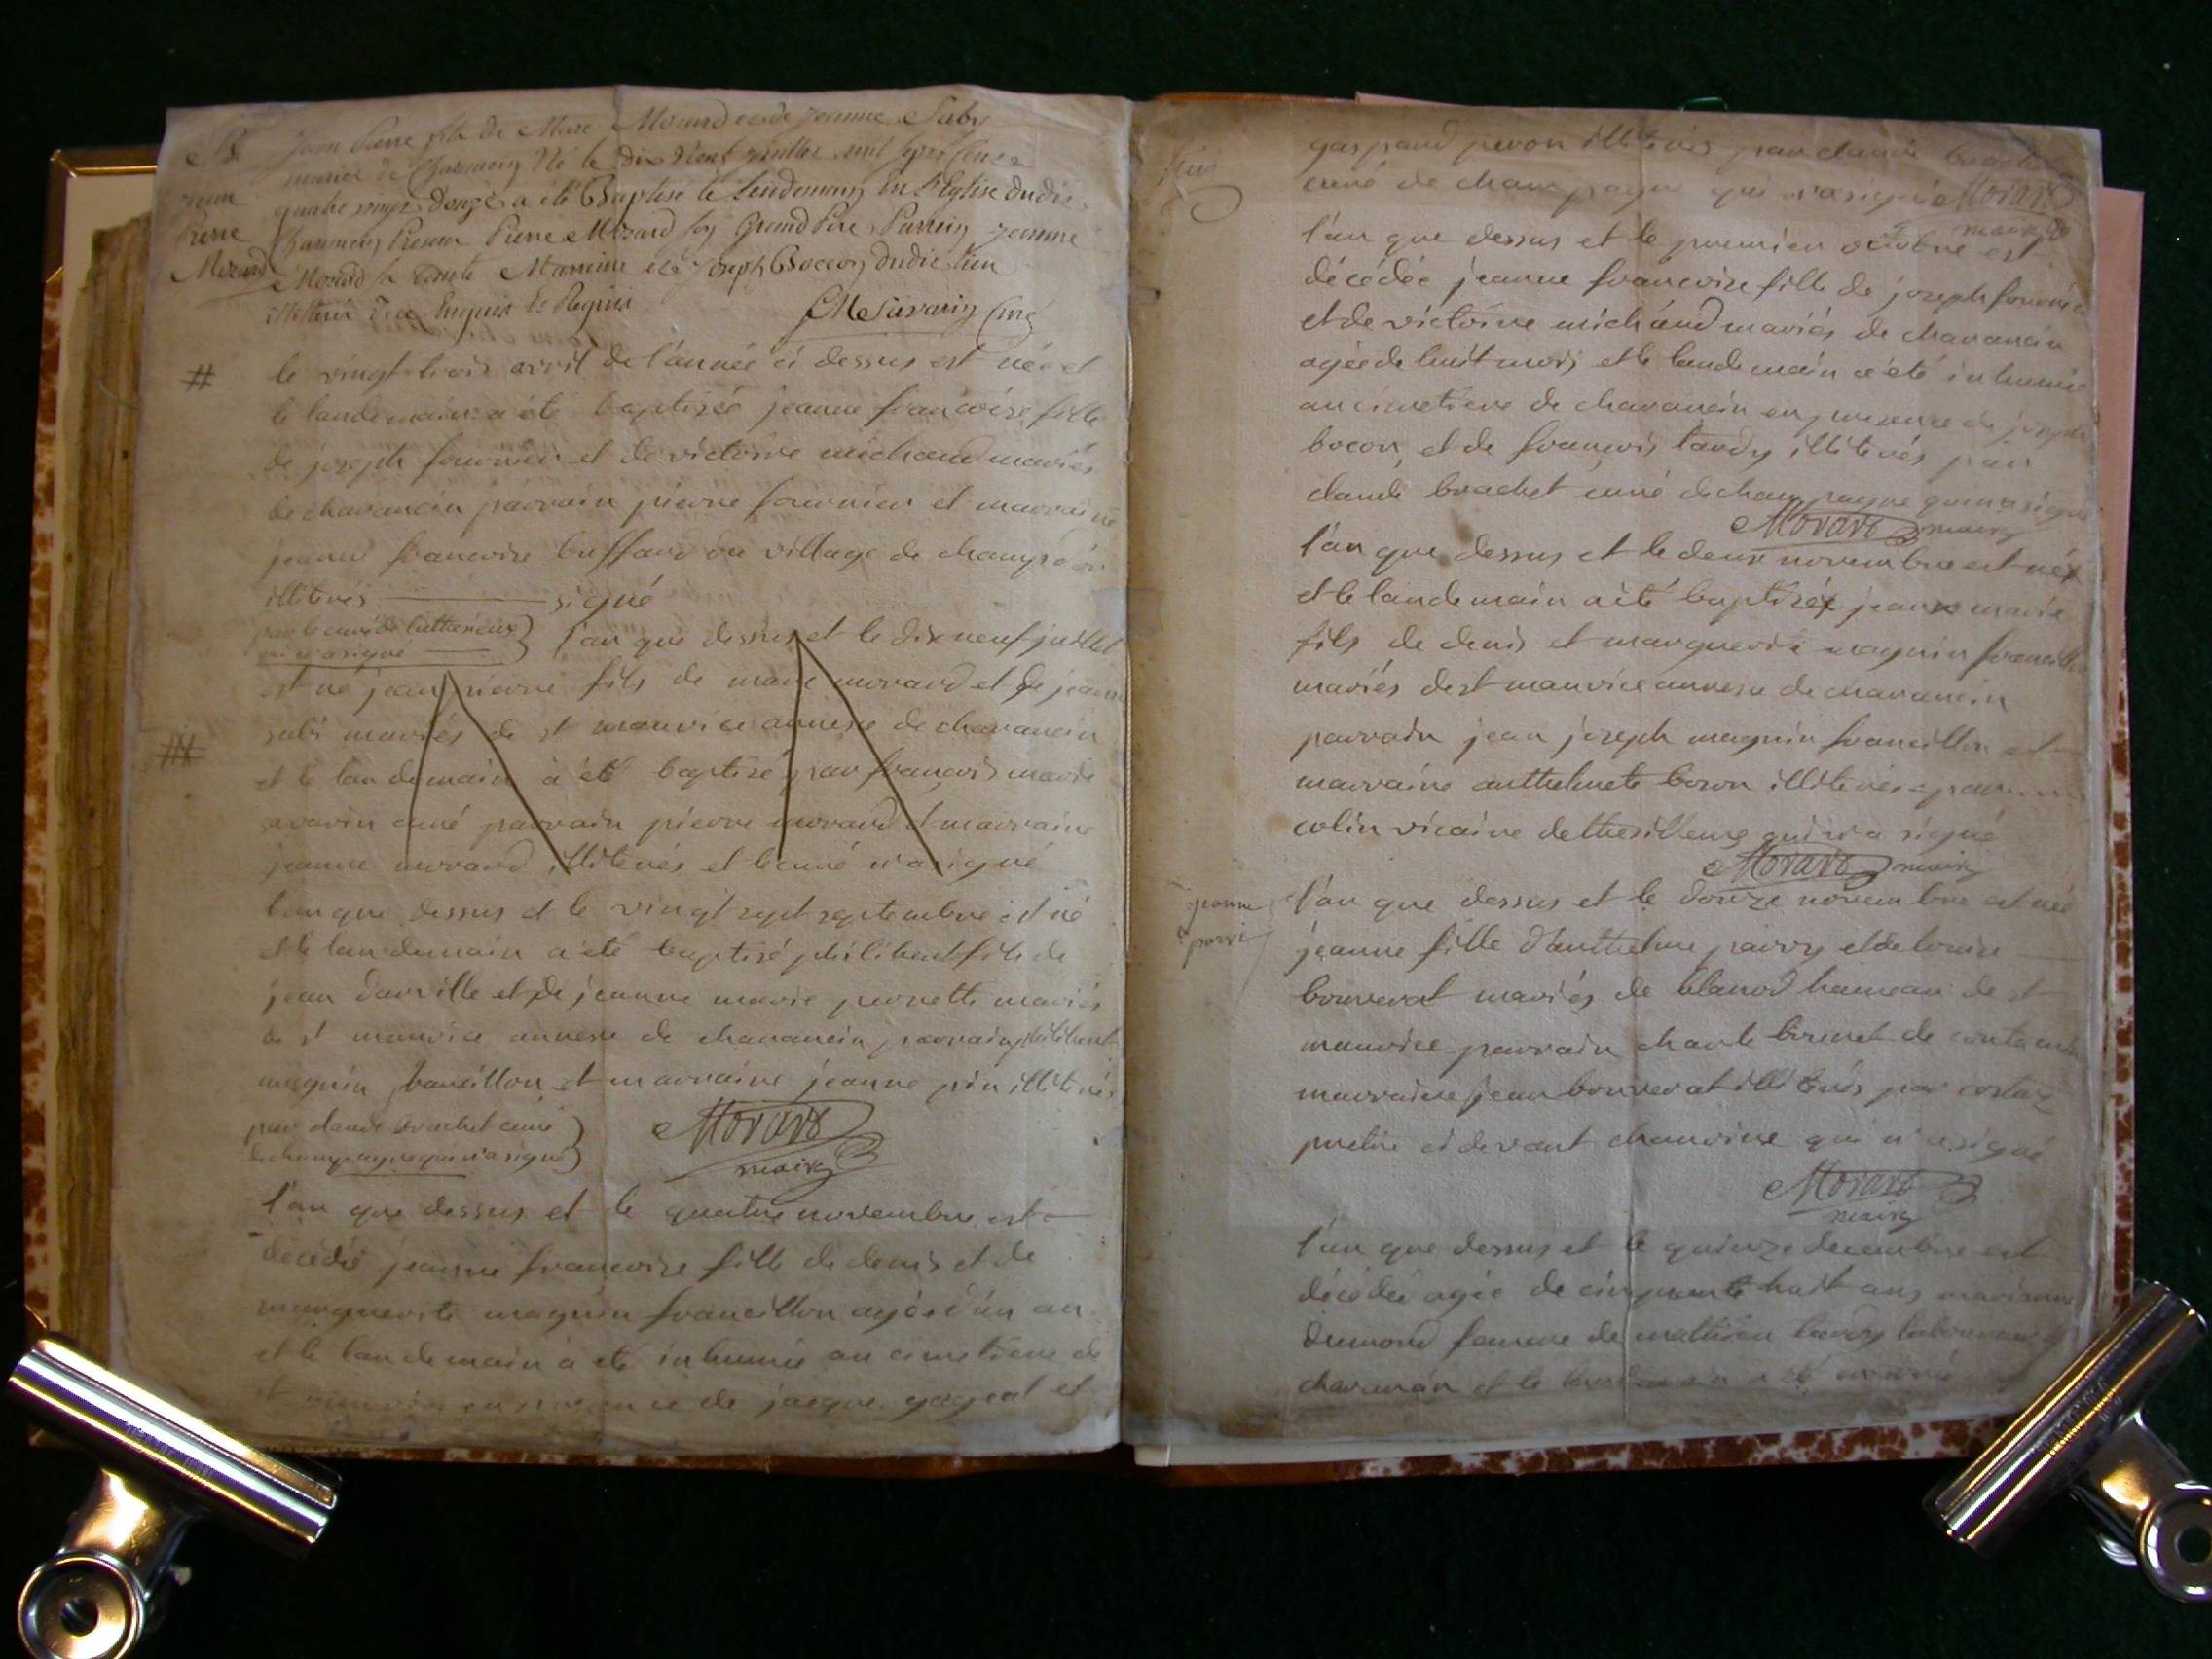 B.
jean
Pierre
Morard
Jean Pierre fils de Marc Morard et de jeanne Saby
mariés de Charancin Né le dix neuf juillet mil sept cent
quatre vingt douze a été Baptisé le Lendemain En l'Eglise dudit
Charancin Present Pierre Morard son Grand Pere Parrein jeanne
Morard sa tante Marreine et joseph Boccon dudit lieu
illiterés de ce Enquis Et Requis
Savarin Curé
#
le vingt trois avril de l'année ci dessus est née et
le landemain a été baptisée jeanne francoise fille
de joseph fournier et de victoire michaud mariés
de charancin parrain pierre fournier et marraine
jeanne francoise buffard du village de champdor
illiterés signé
par le curé de
qui n'a signé
l'an que dessus et le dix neuf juillet
est né jean pierre fils de marc morard et de jeanne
sabi mariés de st mauvice annexe de charancin
et le landemain a été baptisé par francois marie
savarin curé parrain pierre morard et marraine
jeanne morard illiterés et le curé n'a signé
l'an que dessus et le vingt sept septembre est né
et le landemain a été baptisé philibert fils de
jean darville et de jeanne marie perrette mariés
de st mauvice annexe de charancin parrain philibert
magnin francillon et marraine jeanne pin illiterés
par claude brachet curé
de champagne qui n'a signé
Morard
maire
l'an que dessus et le quatre novembre est
décédée jeanne francoise fille de denis et de
marguerite magnin francillon agée d'un an
et le landemain a été inhumée au cimetiere de
st mauvice en presence de jacque gojeat et
gaspard peron illiterés par claude brachet
curé de champagne qui n'a signé Morard
maire
l'an que dessus et le premier octobre est
décédée jeanne francoise fille de joseph fournier
et de victoire michaud mariés de charancin
agée de huit mois et le landemain a été inhumée
au cimetiere de charancin en presence de joseph
bocon et de francois tardy illiterés par
claude brachet curé de champagne qui n'a signé
Morard maire
l'an que dessus et le deux novembre est né
et le landemain a été baptisé jean marie
fils de denis et marguerite magnin francillon
mariés de st mauvice annexe de charancin
parrain jean joseph magnin francillon et
marraine anthelmete boson illiterés par
colin vicaire de qui n'a signé
Morard maire
jeanne
parri
l'an que dessus et le douze novembre est née
jeanne fille d'anthelme parry et de louise
bouverat mariés de blanod hameau de st
mauvice parrain charle brunet de
marraine jean bouverat illiterés par costaz
pretre ci devant chanoine qui n'a signé
Morard
maire
l'an que dessus et le quinze decembre est
décédée agée de cinquante huit ans marianne
dumond femme de mathieu tardy laboureur
charancin et le landemain a été